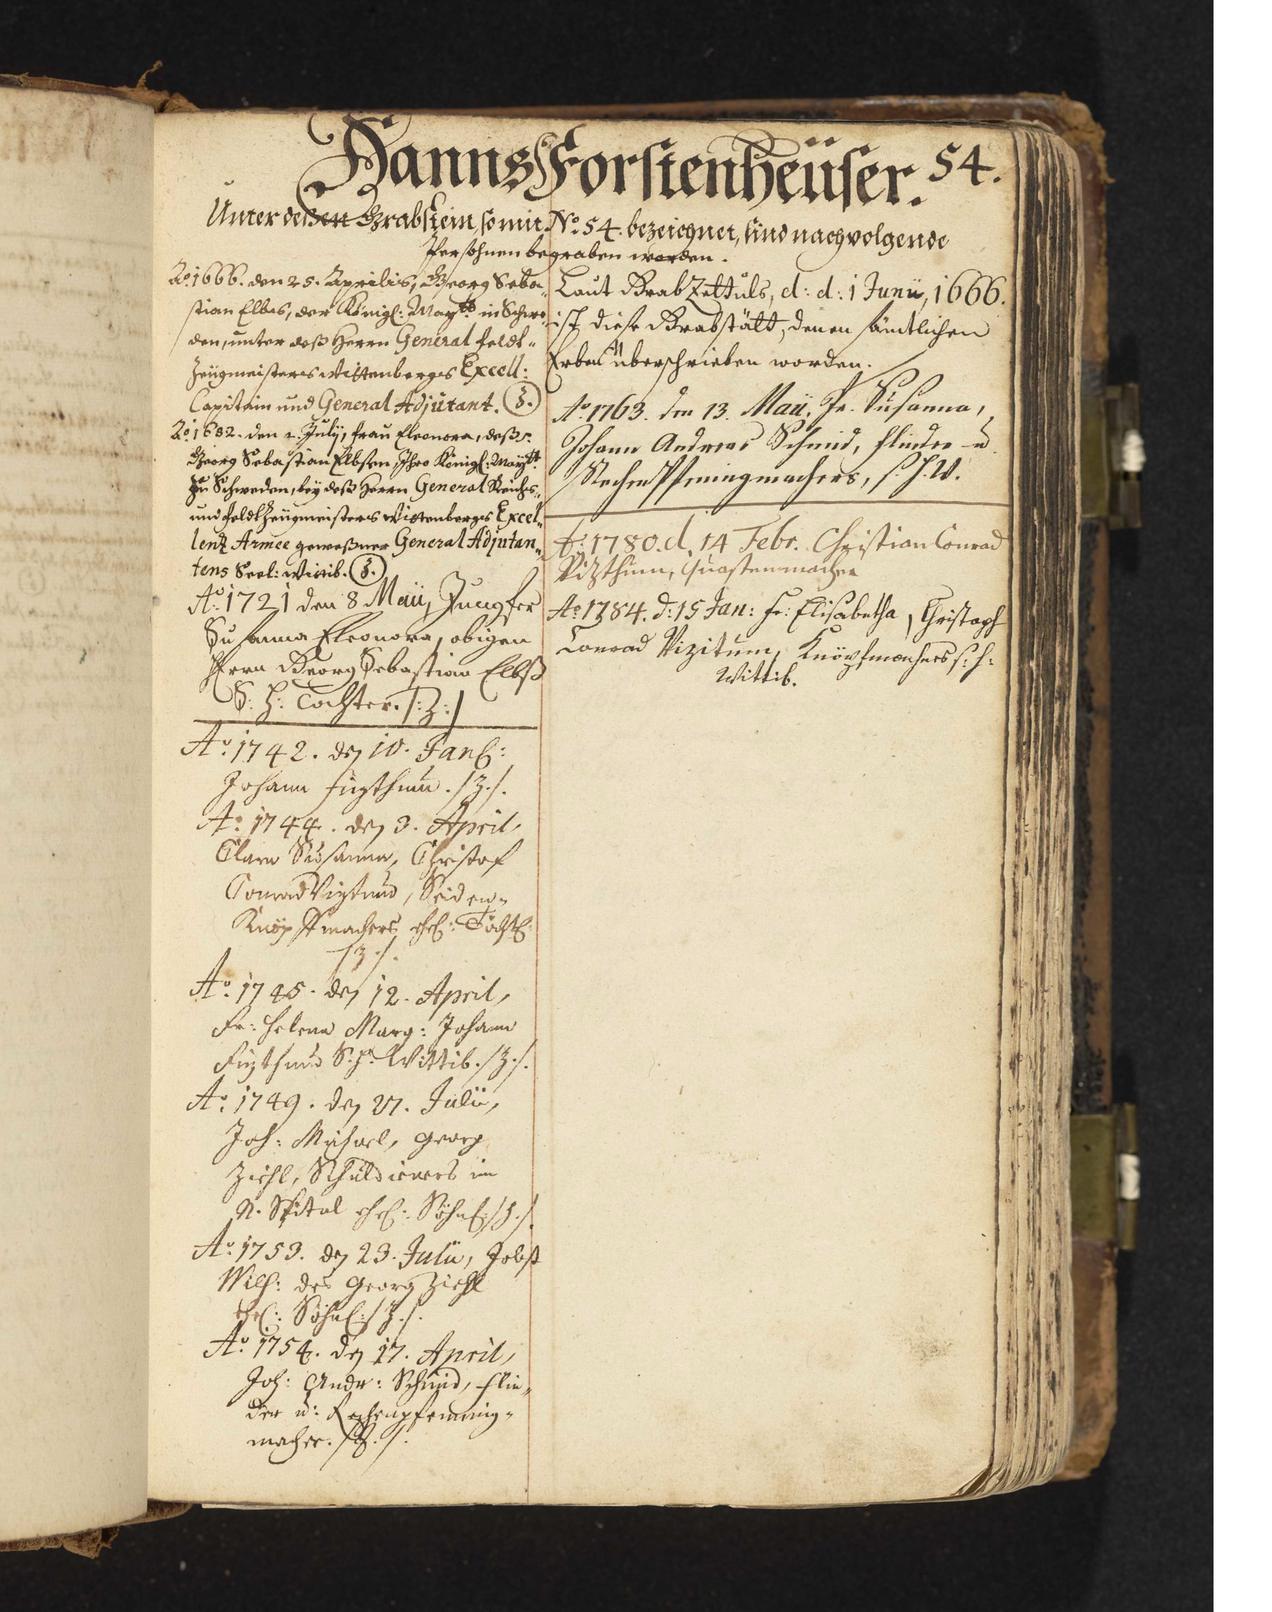 Hanns Forstenheüser. 54.
Unter deßen Grabstein, so mit No: 54. bezeichnet, sind nachvolgende
Persohnen begraben worden.
Ao: 1666. den 25. Aprilis, Georg Seba-
stian Elbes, der Königl: Maytt: in Schwe-
den, unter deß Herrn General feldt-
Zeügmeisters Wittenberges Excell:
Capitain und General Adjutant. (3.)
Ao: 1682. den 2. July, frau Eleonora, deß
Georg Sebastian Elbsen, Ihro Königl: Maytt:
zu Schweden, bey deß Herrn General Reichs-
und feldtzeügmeisters Wittenberges Excel-
lenz Armee geweßner General Adjutan-
tens Seel: Wittib. (3.)
Ao: 1721 den 8 Maii, Jungfer
Susanna Eleonora, obigen
Herrn Georg Sebastian Elbß
S: H: Tochter. /:3:/
Ao: 1742. den 10. Jan:
Johann . /3./.
Ao: 1744. den 3. April,
Clara Susanna, Christof
Conrad Viztums, Seiden-
Knöpffmachers ehl: Töchtl:
/3./.
Ao: 1745. den 12. April,
Fr: Helena Marg: Johann
S: H: Wittib. /3./.
Ao: 1749. den 27. Julii,
Joh: Michael, Georg
Ziehl, Schuldieners im
N. Spital ehl: Söhnl: /3./.
Ao: 1753. den 23. Julii, Jobst
Wilh: des Georg Ziehl
ehl: Söhnl: /3./.
Ao: 1754. den 17. April,
Joh: Andr: Schmid, Flin-
der u: Rechenpfenning-
macher. /3./.
Laut Grab Zettuls, d: d: 1 Junii, 1666.
ist diese Grabstätt, denen sämtlichen
Erben überschrieben worden.
Ao: 1763. den 13. Maii, Fr. Susanna,
Johann Andreas Schmid, Flinder- u
Rechen Pfenningmachers, s. H. W.
Ao: 1780. d. 14 Febr. Christian Conrad
Vizthum, Quastenmacher
Ao: 1784. d: 15 Jan: Fr: Elisabetha, Christoph
Conrad Vizitum, Knöpfmachers s: h:
Wittib.